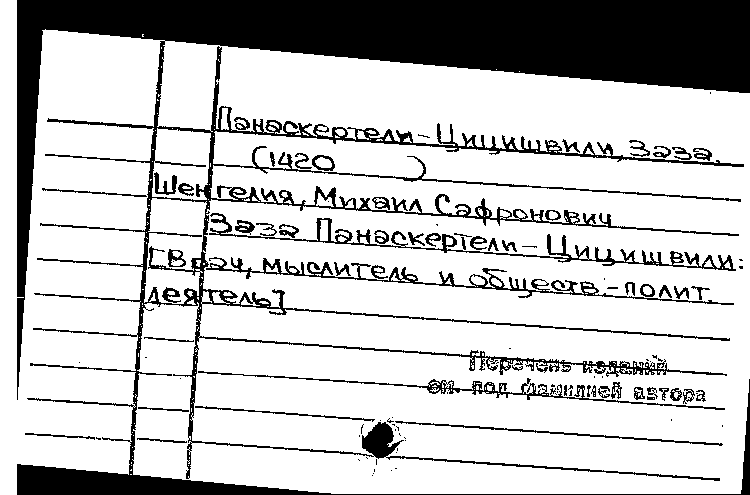 Панаскертели-Цицишвили, Заза.
(1420 )
Шенгелия, Михаил Сафронович
Заза Панаскертели-Цицишвили:
[Врач, мыслитель и обществ.-полит.
деятель]
Перечень изданий
см. под фамилией автора